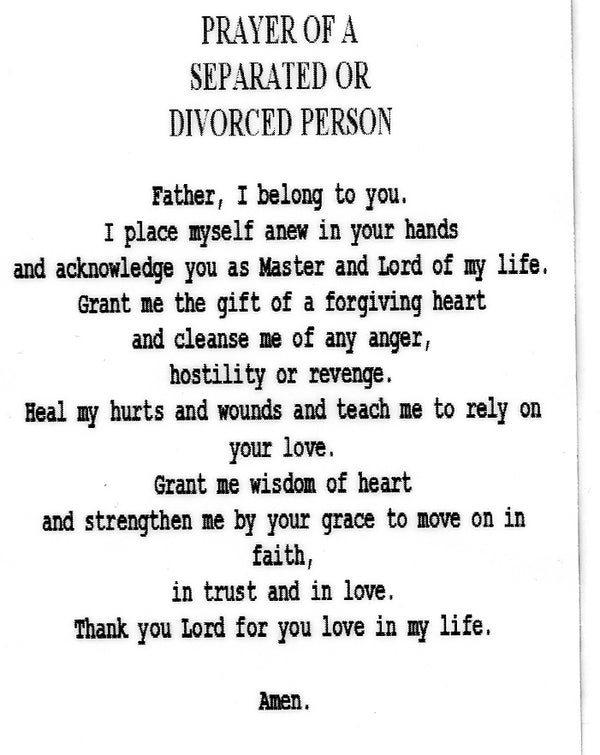 PRAYER OF A
SEPARATED OR
DIVORCED PERSON
Father, I belong to you.
I place myself anew in your hands
and acknowledge you as Master and Lord of my life.
Grant me the gift of a forgiving heart
and cleanse me of any anger,
hostility or revenge.
Heal my hurts and wounds and teach me to rely on
your love.
Grant me wisdom of heart
and strengthen me by your grace to move on in
faith,
in trust and in love.
Thank you Lord for you love in my life.
Amen.